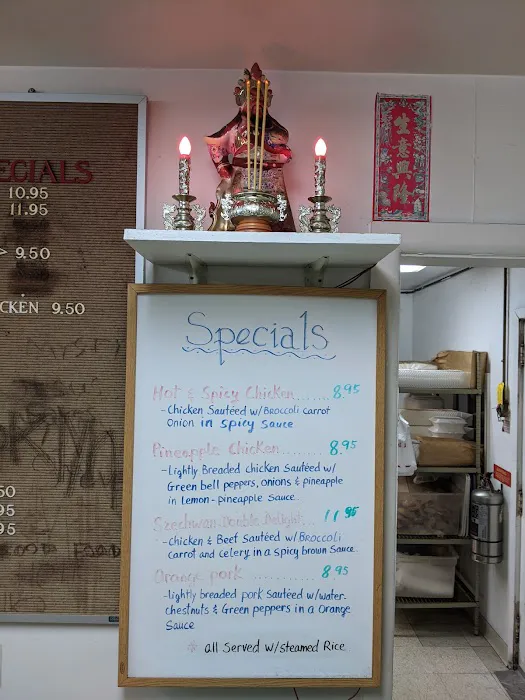 ECIALS
10.95
11.95
9.50
CKEN 9.50
50
95
95
FOOD
生意興隆
Specials
Hot & Spicy Chicken......8.95
- Chicken Sautéed w/Broccoli carrot
Onion in spicy sauce
Pineapple Chicken.......8.95
- Lightly Breaded chicken Sautéed w/
Green bell peppers, onions & pineapple
in Lemon-pineapple Sauce.
Szechwan Double Delight.. 11.95
- Chicken & Beef Sautéed w/Broccoli
carrot and celery in a spicy brown Sauce.
Orange pork .......... 8.95
- lightly breaded pork Sautéed w/water-
chestnuts & Green peppers in a Orange
Sauce
* all Served w/steamed Rice